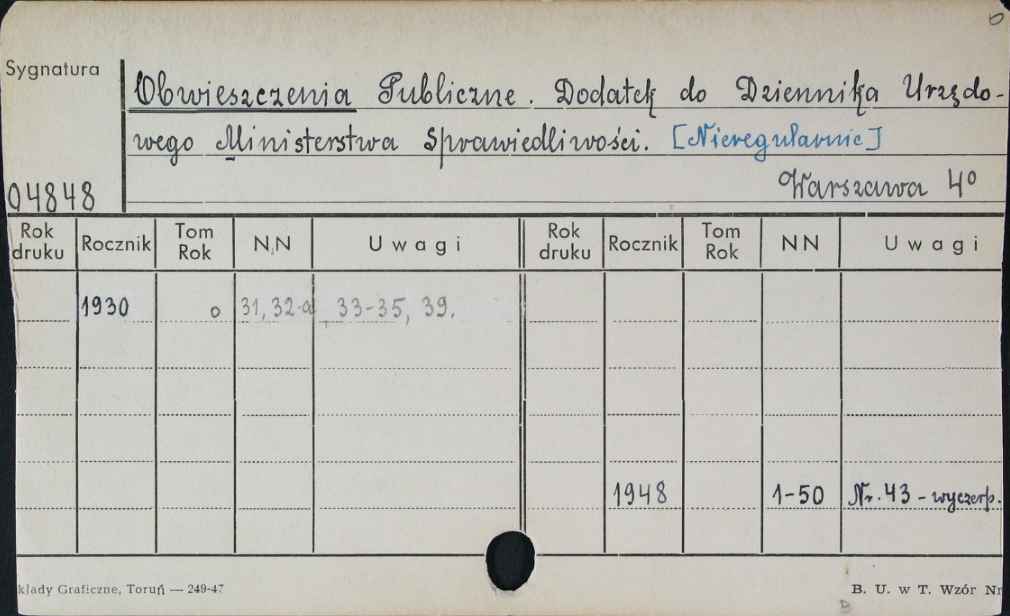 Sygnatura
Obwieszczenia Publiczne. Dodatek do Dziennika Urzędo-
wego Ministerstwa Sprawiedliwości. [Nieregularnie]
04848
Warszawa 4°
Rok druku Rocznik Tom Rok NN Uwagi Rok druku Rocznik Tom Rok NN Uwagi
1930 o 31, 32-a 33-35, 39.
1948 1-50 Nr. 43 - wyczerp.
kłady Graficzne, Toruń — 249-47 B. U. w T. Wzór Nr